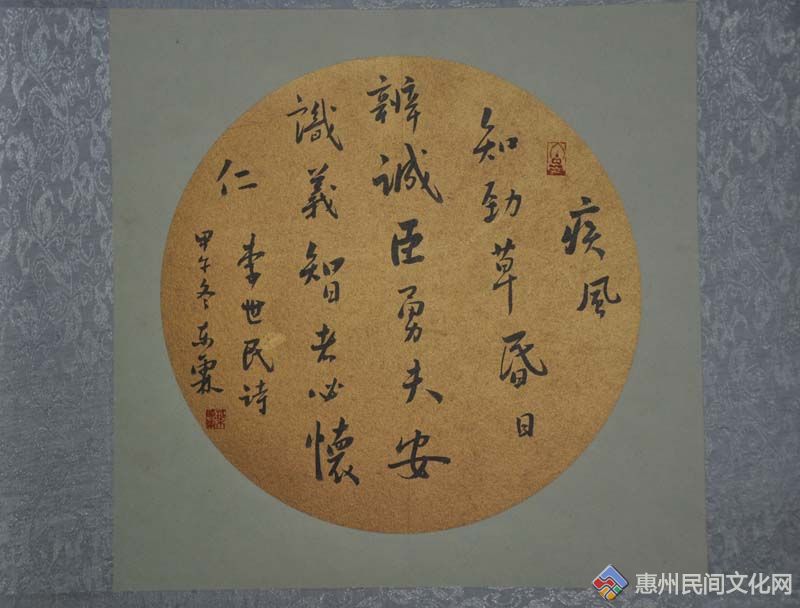 疾風
知劲草昏日
辨誠臣勇夫安
識義智者必懷
仁
李世民诗
甲午冬东霖
惠州民间文化网